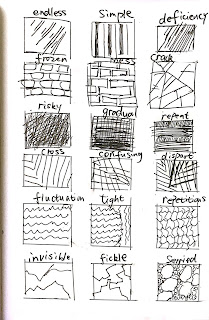 endless simple deficiency
frozen mess Crack
risky gradual repeat
cross confusing dispart
fluctuation tight repetitions
invisible fickle Serried